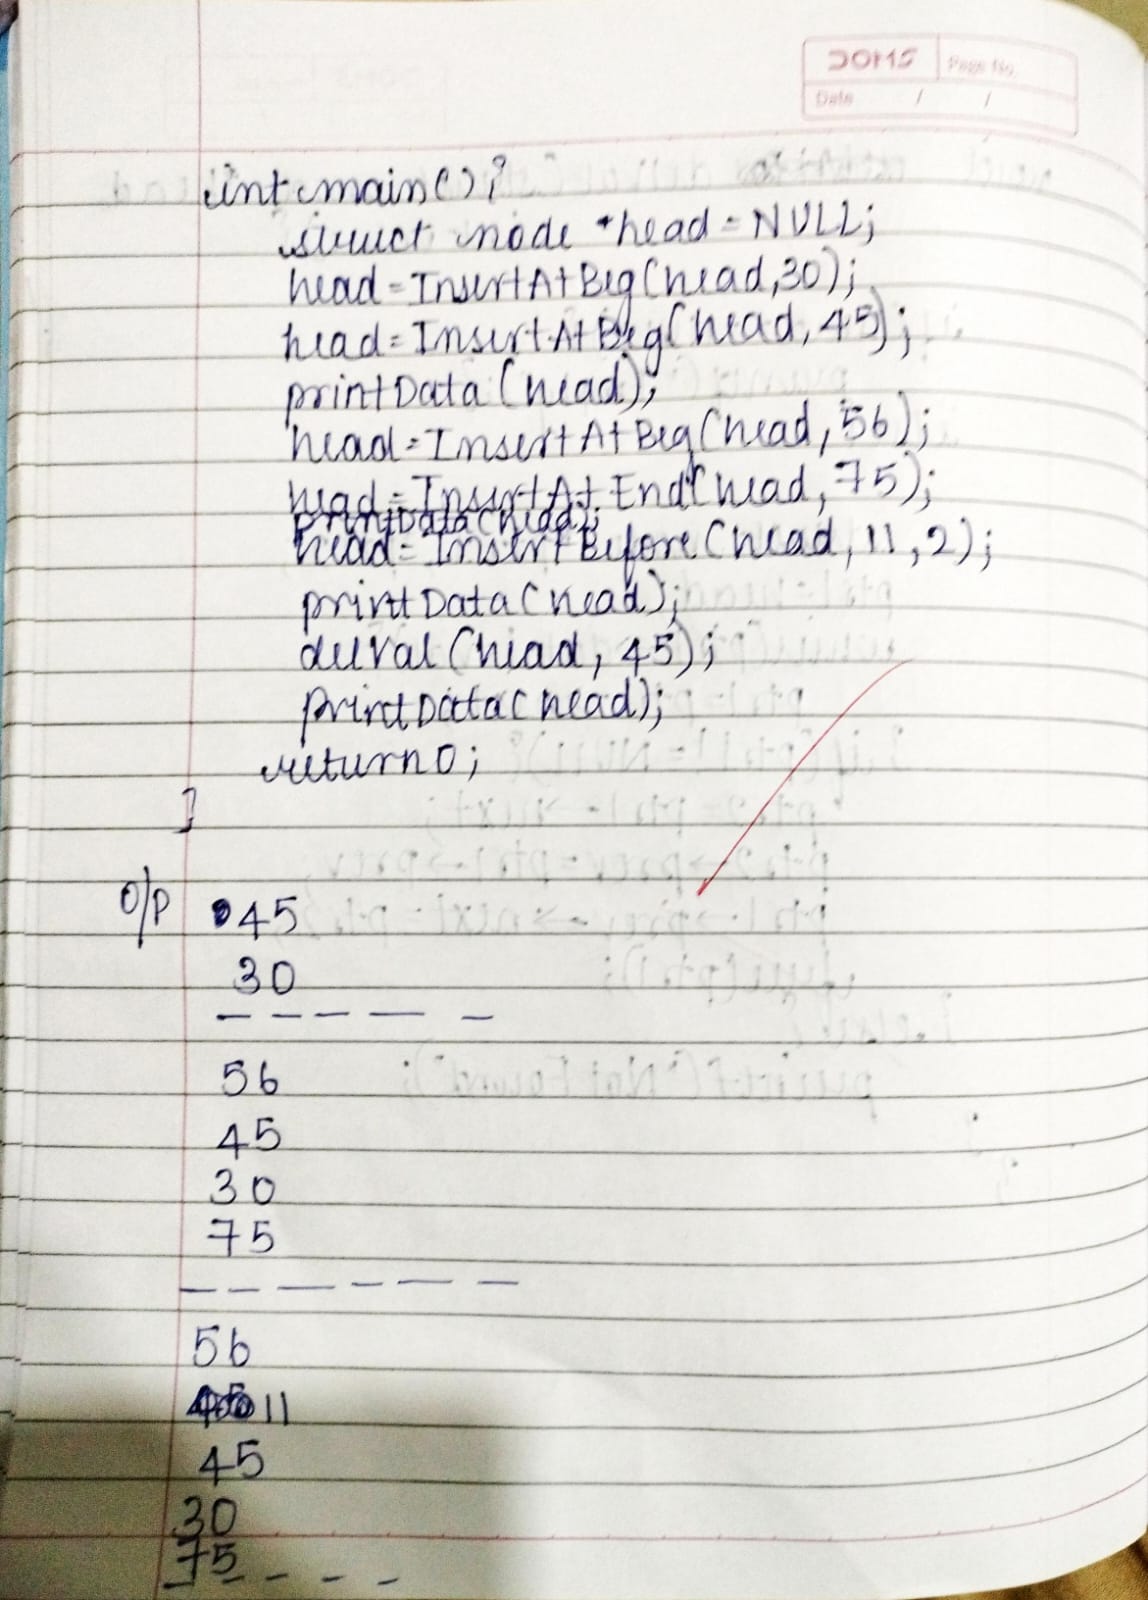 DOMS Page No.
Date / /
int main(){
struct node *head = NULL;
head = InsertAtBeg(head,30);
head = InsertAtBeg(head,45);
printData(head);
head = InsertAtBeg(head,56);
head = InsertAtEnd(head,75);
printData(head);
head = InsertBefore(head,11,2);
printData(head);
delVal(head,45);
printData(head);
return 0;
}
O/P 45
30
- - - - -
56
45
30
75
- - - - - -
56
11
45
30
75
- - - - -